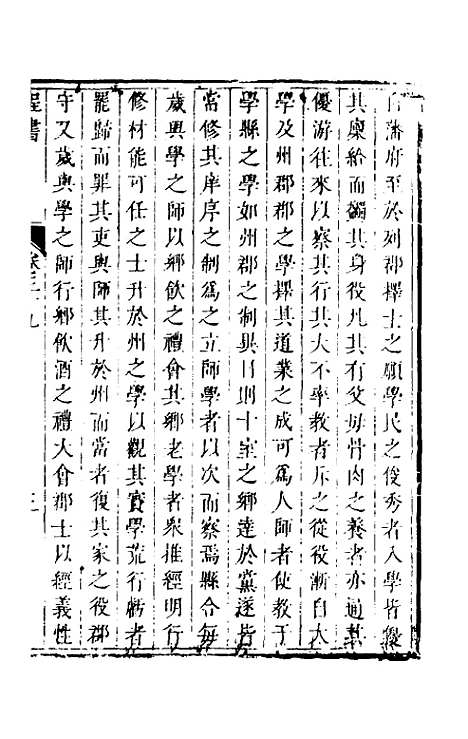 自藩府至於列郡擇士之願學民之俊秀者入學皆優
其廩給而蠲其身役凡其有父母骨肉之養者亦通其
優游往來以察其行其大不率教者斥之從役漸自大
學及州郡之學擇其道業之成可為人師者使教于
學縣之學如州郡之制異日則十室之鄉達於黨遂皆
當修其庠序之制為之立師學者以次而察焉縣令每
歲與學之師以鄉飲之禮會其鄉老學者眾推經明行
修材能可任之士升於州之學以觀其實學荒行虧者
罷歸而罪其吏與師其升於州而當者復其家之役郡
守又歲與學之師行鄉飲酒之禮大會郡士以經義性
程書
卷三十九
三